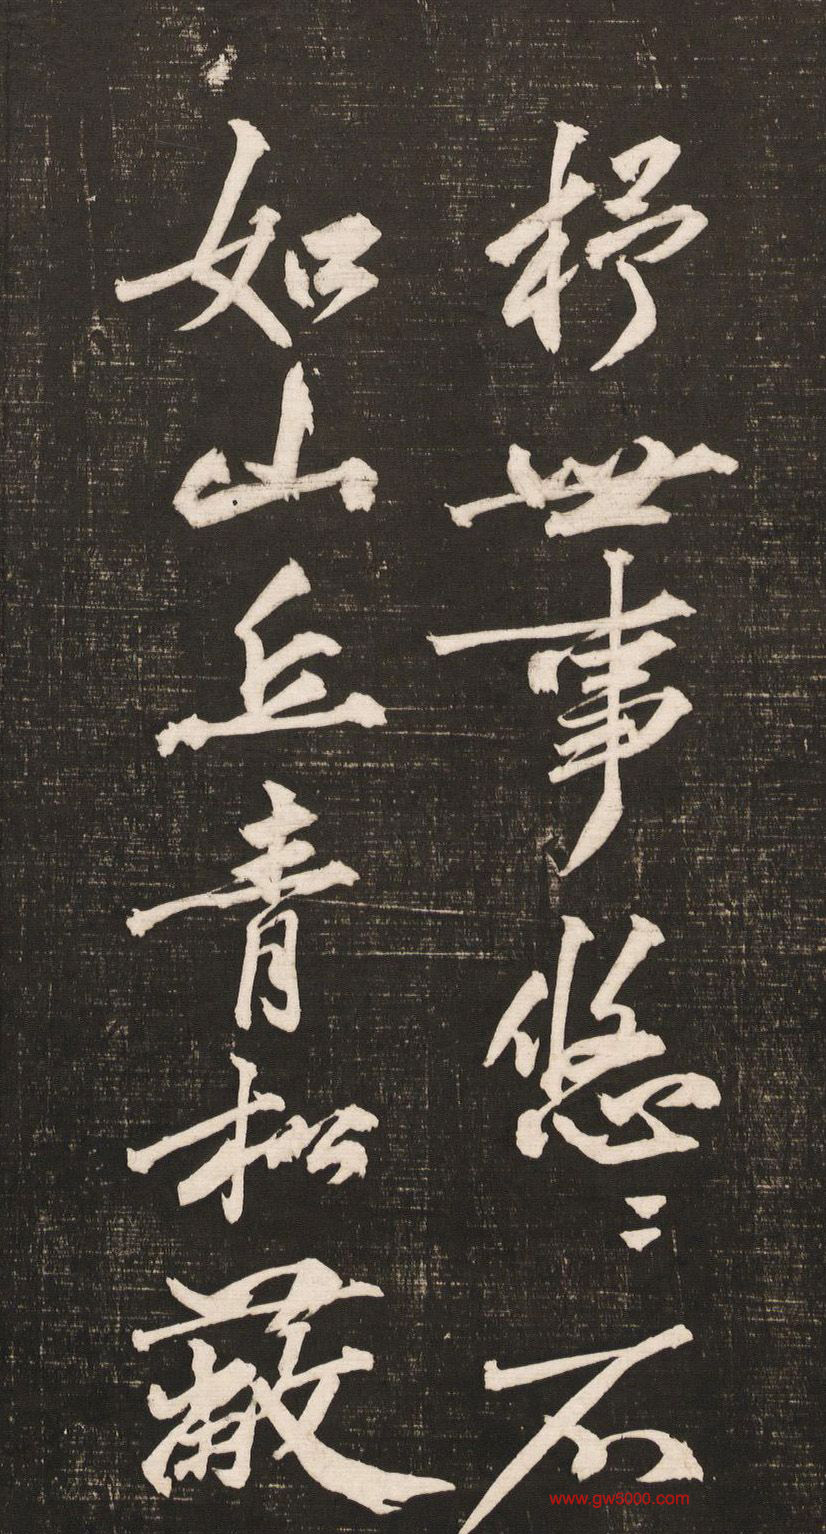 杼世事悠〻不
如山丘青松蔽
www.gw8000.com